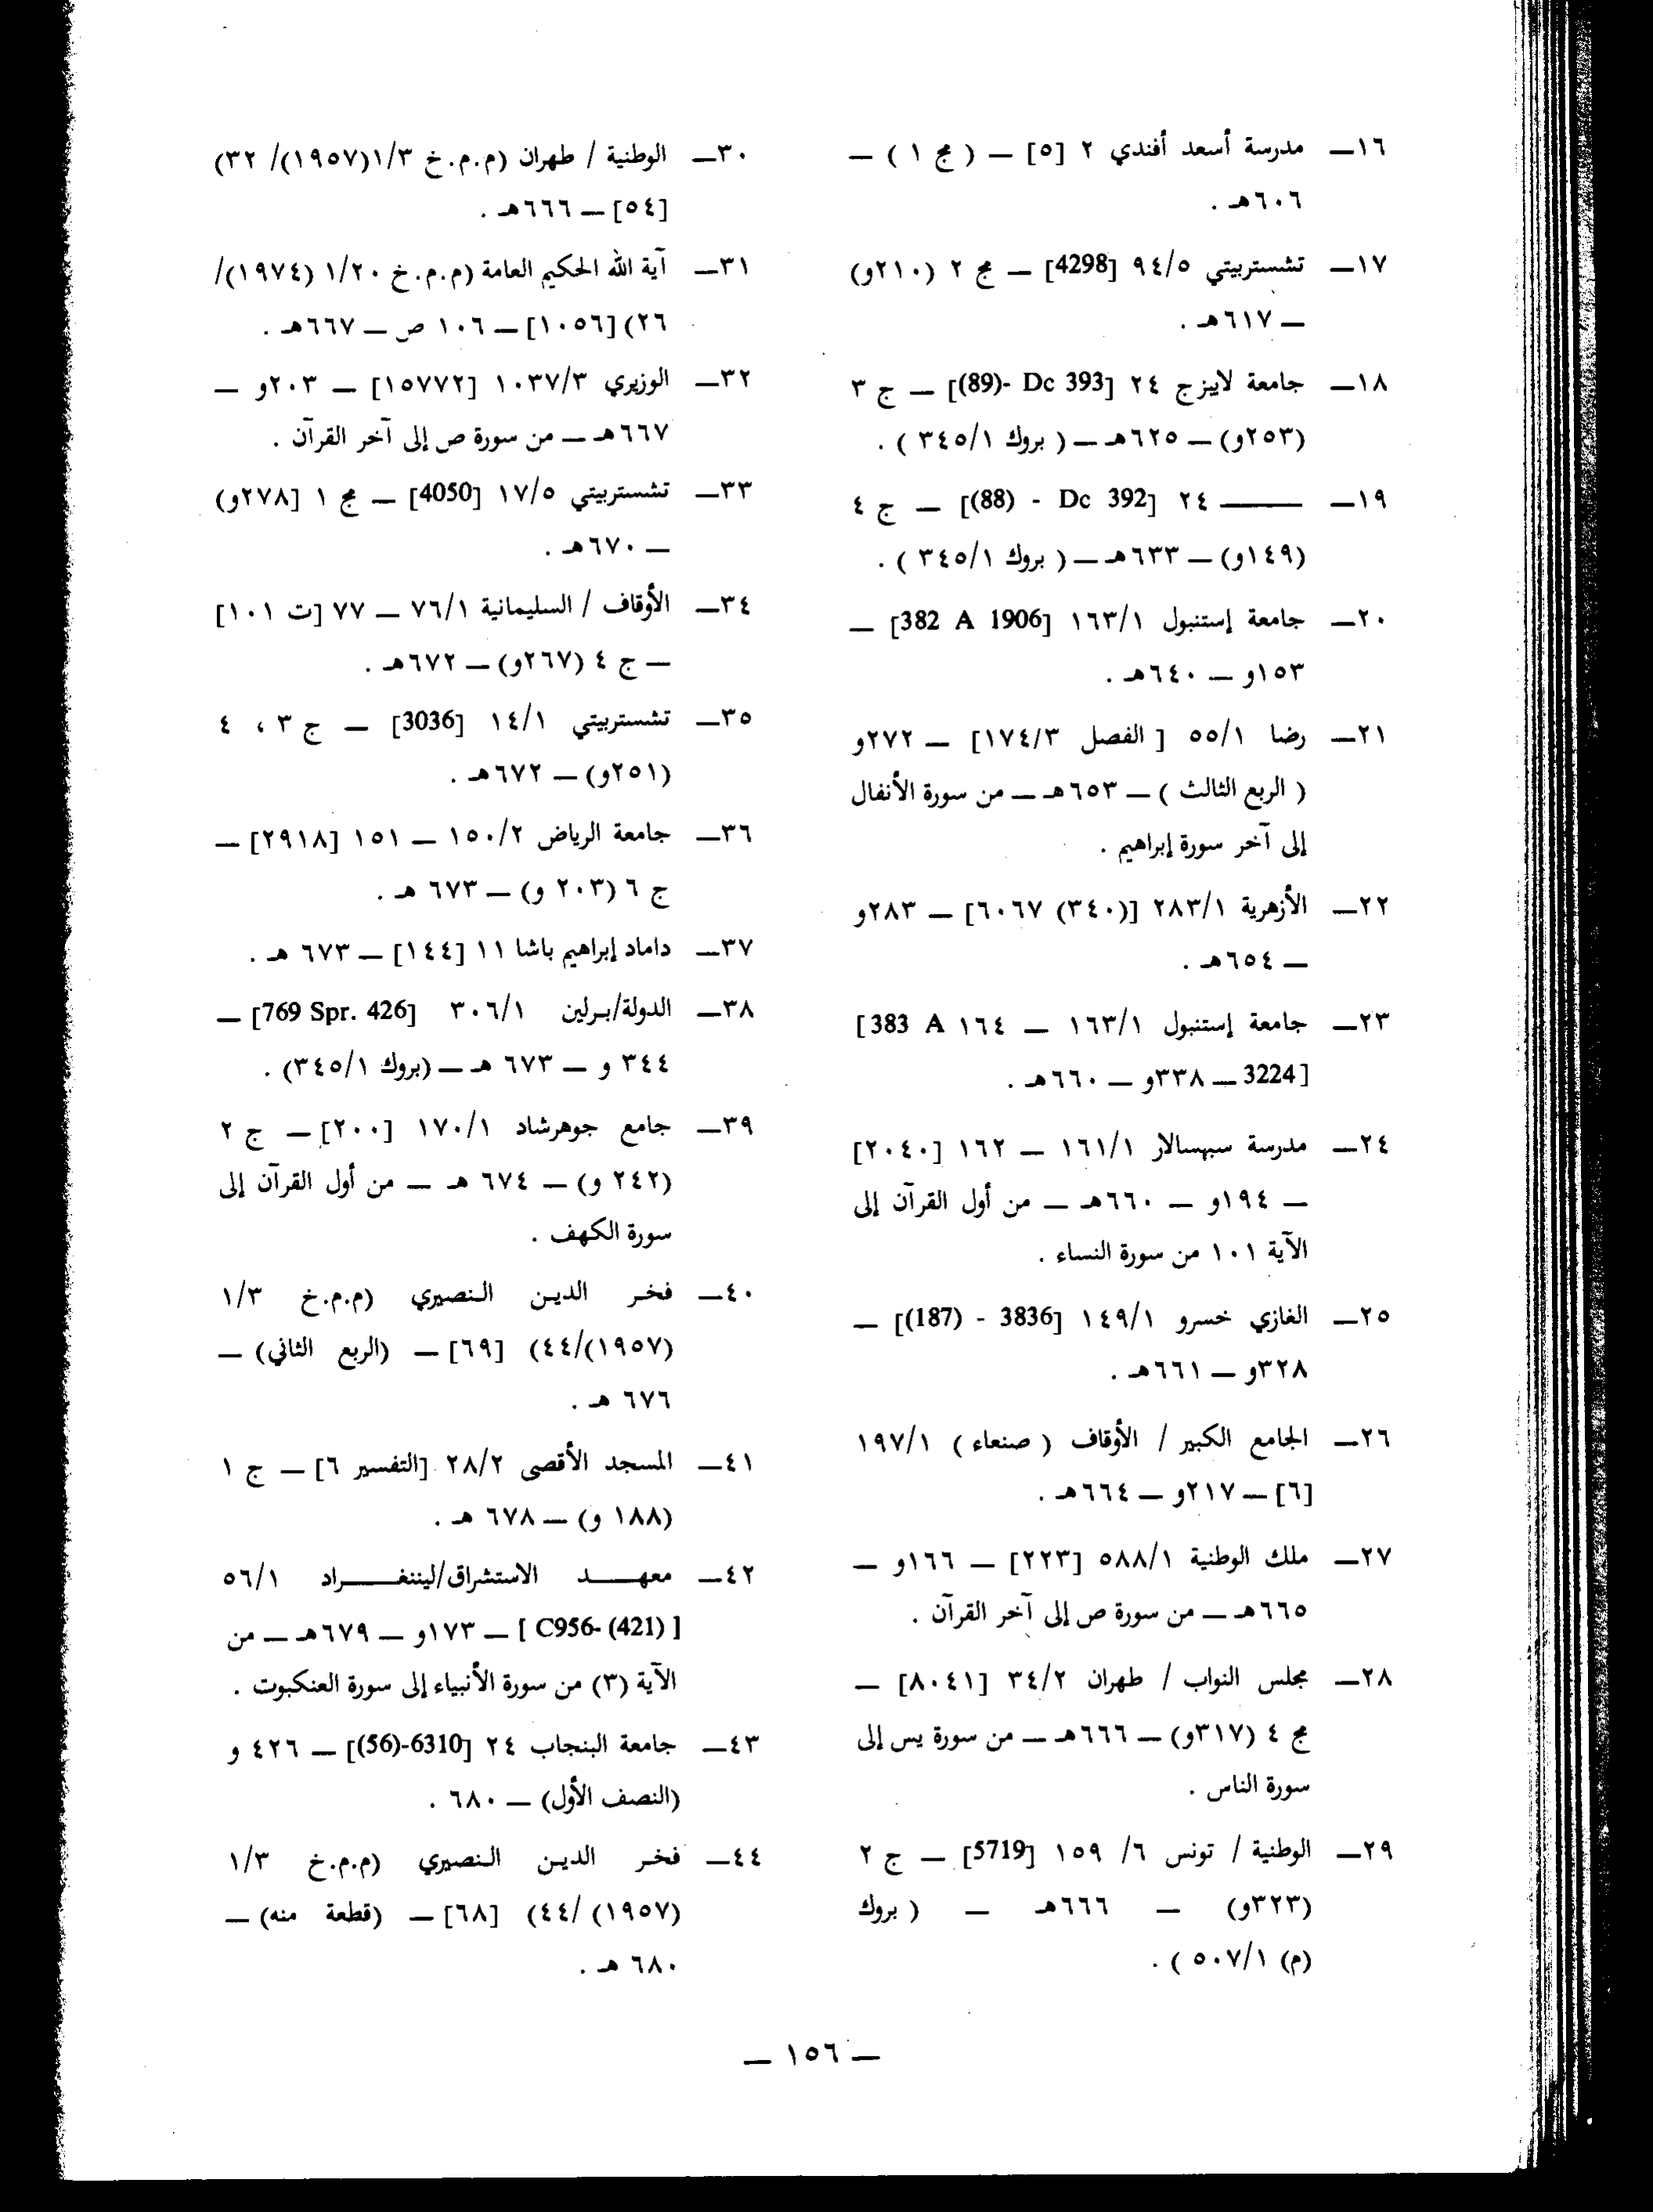 ١٦— مدرسة أسعد أفندي ٢ [٥] — ( مج ١ ) —
٦٠٦هـ .
١٧— تشستربيتي ٩٤/٥ [4298] — مج ٢ (٢١٠و)
— ٦١٧هـ .
١٨— جامعة لايبزج ٢٤ [Dc 393 -(89)] — ج ٣
(٢٥٣و) — ٦٢٥هـ — ( بروك ٣٤٥/١ ) .
١٩— ——— ٢٤ [Dc 392 - (88)] — ج ٤
(١٤٩و) — ٦٣٣هـ — ( بروك ٣٤٥/١ ) .
٢٠— جامعة إستنبول ١٦٣/١ [382 A 1906] —
١٥٣و — ٦٤٠هـ .
٢١— رضا ٥٥/١ [ الفصل ١٧٤/٣] — ٢٧٢و
( الربع الثالث ) — ٦٥٣هـ — من سورة الأنفال
إلى آخر سورة إبراهيم .
٢٢— الأزهرية ٢٨٣/١ [(٣٤٠) ٦٠٦٧] — ٢٨٣و
— ٦٥٤هـ .
٢٣— جامعة إستنبول ١٦٣/١ — ١٦٤ [383 A
3224] — ٣٣٨و — ٦٦٠هـ .
٢٤— مدرسة سبهسالار ١٦١/١ — ١٦٢ [٢٠٤٠]
— ١٩٤و — ٦٦٠هـ — من أول القرآن إلى
الآية ١٠١ من سورة النساء .
٢٥— الغازي خسرو ١٤٩/١ [3836 - (187)] —
٣٢٨و — ٦٦١هـ .
٢٦— الجامع الكبير / الأوقاف ( صنعاء ) ١٩٧/١
[٦] — ٢١٧و — ٦٦٤هـ .
٢٧— ملك الوطنية ٥٨٨/١ [٢٢٣] — ١٦٦و —
٦٦٥هـ — من سورة ص إلى آخر القرآن .
٢٨— مجلس النواب / طهران ٣٤/٢ [٨٠٤١] —
مج ٤ (٣١٧و) — ٦٦٦هـ — من سورة يس إلى
سورة الناس .
٢٩— الوطنية / تونس ٦/ ١٥٩ [5719] — ج ٢
(٣٢٣و) — ٦٦٦هـ — ( بروك
(م) ٥٠٧/١ ) .
٣٠— الوطنية / طهران (م.م.خ ١/٣(١٩٥٧)/ ٣٢)
[٥٤] — ٦٦٦هـ .
٣١— آية الله الحكيم العامة (م.م.خ ١/٢٠ (١٩٧٤)/
٢٦) [١٠٥٦] — ١٠٦ ص — ٦٦٧هـ .
٣٢— الوزيري ١٠٣٧/٣ [١٥٧٧٢] — ٢٠٣و —
٦٦٧هـ — من سورة ص إلى آخر القرآن .
٣٣— تشستربيتي ١٧/٥ [4050] — مج ١ [٢٧٨و)
— ٦٧٠هـ .
٣٤— الأوقاف / السليمانية ٧٦/١ — ٧٧ [ت ١٠١]
— ج ٤ (٢٦٧و) — ٦٧٢هـ .
٣٥— تشستربيتي ١٤/١ [3036] — ج ٣ ، ٤
(٢٥١و) — ٦٧٢هـ .
٣٦— جامعة الرياض ١٥٠/٢ — ١٥١ [٢٩١٨] —
ج ٦ (٢٠٣ و) — ٦٧٣ هـ .
٣٧— داماد إبراهيم باشا ١١ [١٤٤] — ٦٧٣ هـ .
٣٨— الدولة/برلين ٣٠٦/١ [769 Spr. 426] —
٣٤٤ و — ٦٧٣ هـ — (بروك ٣٤٥/١) .
٣٩— جامع جوهرشاد ١٧٠/١ [٢٠٠] — ج ٢
(٢٤٢ و) — ٦٧٤ هـ — من أول القرآن إلى
سورة الكهف .
٤٠— فخر الدين النصيري (م.م.خ ١/٣
(١٩٥٧)/٤٤) [٦٩] — (الربع الثاني) —
٦٧٦ هـ .
٤١— المسجد الأقصى ٢٨/٢ [التفسير ٦] — ج ١
(١٨٨ و) — ٦٧٨ هـ .
٤٢— معهد الاستشراق/ليننغراد ٥٦/١
[C956- (421)] — ١٧٣و — ٦٧٩هـ — من
الآية (٣) من سورة الأنبياء إلى سورة العنكبوت .
٤٣— جامعة البنجاب ٢٤ [6310-(56)] — ٤٢٦ و
(النصف الأول) — ٦٨٠ .
٤٤— فخر الدين النصيري (م.م.خ ١/٣
(١٩٥٧) /٤٤) [٦٨] — (قطعة منه) —
٦٨٠ هـ .
— ١٥٦ —